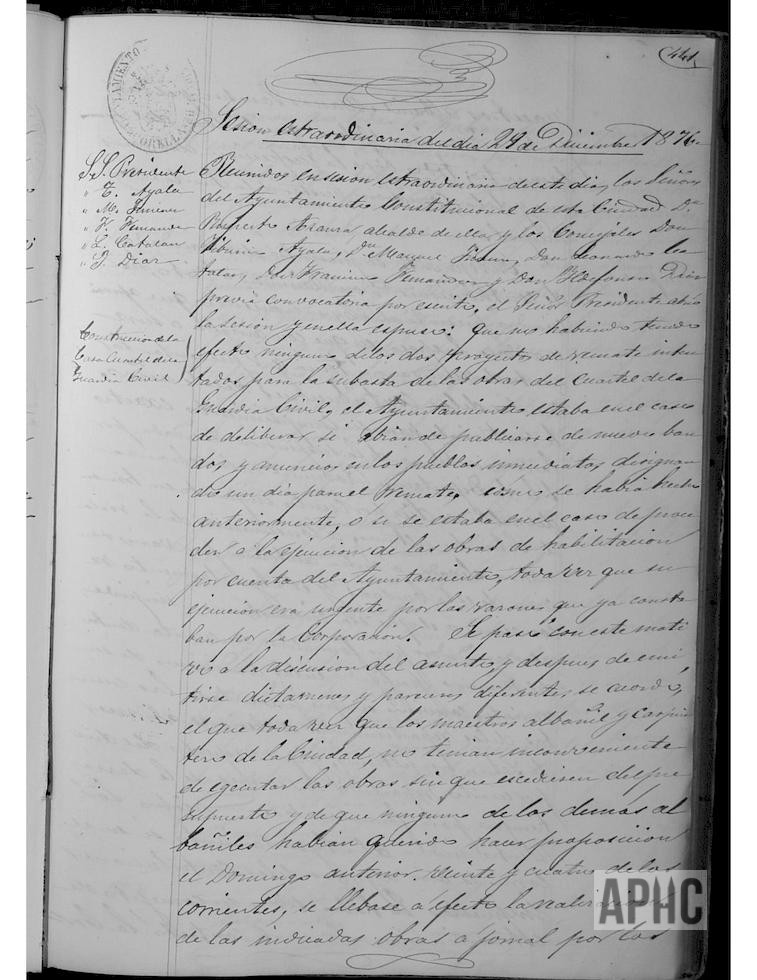 441
Sesion estraordinaria del dia 29 de Diciembre 1876
S.S. Presidente
" T. Ayala
" M.
" F. Fernandez
" L. Catalan
" Y. Diaz
Construccion de la
Casa Cuartel de la
Guardia Civil
Reunidos en sesion estraordinaria de este dia, los Señores
del Ayuntamiento Constitucional de esta Ciudad Dn
Roberto Aranza alcalde de ella, y los Concejales Don
Tiburcio Ayala, Dn Manuel Don Leonardo Ca
talan, Don Francisco Fernandez y Don Yldefonso Diaz
previa convocatoria por escrito, el Señor Presidente abrió
la sesion y en ella espuso: que no habiendo tenido
efecto ninguno de los dos proyectos de remate inten
tados para la subasta de las obras del Cuartel de la
Guardia Civil, el Ayuntamiento estaba en el caso
de deliberar si abian de publicarse de nuevo ban
dos y anuncios en los pueblos inmediatos designan
do un dia para el remate, como se habia hecho
anteriormente, o si se estaba en el caso de proce
der a la ejecucion de las obras de habilitacion
por cuenta del Ayuntamiento, toda vez que su
ejecucion era urgente por las razones que ya consta
ban por la Corporacion. Se pasó con este moti
vo a la discusion del asunto, y despues de emi
tirse dictamenes y pareceres diferentes se acordo,
el que toda vez que los maestros albañil y carpin
tero de la Ciudad, no tenian inconveniente
de egecutar las obras sin que escediesen del pre
supuesto y de que ninguno de los demas al
bañiles habian querido hacer proposicion
el Domingo anterior veinte y cuatro de los
corrientes, se llebase a efecto la
de las indicadas obras a jornal por los
APHC